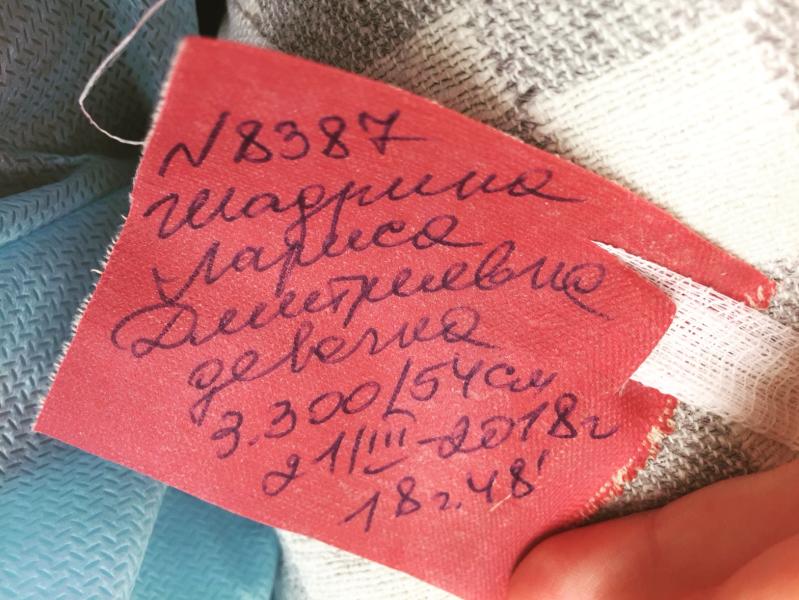 N 8387
Шадрина
Лариса
Дмитриевна
девочка
3.300/54см
21/III-2018г
18г.48'